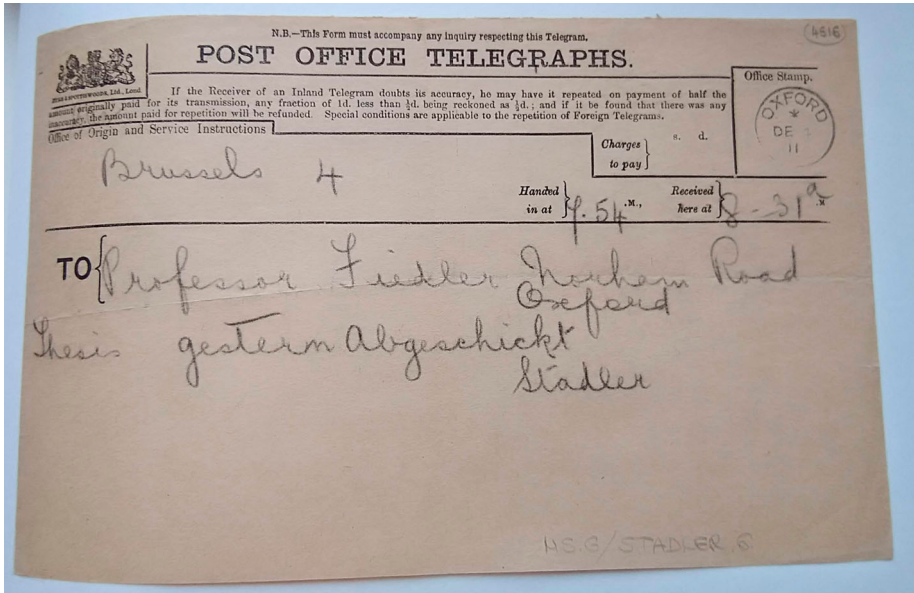 (4616)
N.B.—This Form must accompany any inquiry respecting this Telegram.
POST OFFICE TELEGRAPHS.
If the Receiver of an Inland Telegram doubts its accuracy, he may have it repeated on payment of half the
amount originally paid for its transmission, any fraction of 1d. less than ½d. being reckoned as ½d.; and if it be found that there was any
inaccuracy, the amount paid for repetition will be refunded. Special conditions are applicable to the repetition of Foreign Telegrams.
Office Stamp.
OXFORD
DE
11
Office of Origin and Service Instructions
Brussels 4
Charges to pay
s. d.
Handed in at 7.54 .M.,
Received here at 8-31 a .M
TO Professor Fiedler Norhem Road
Oxford
Thesis gestern Abgeschickt
Stadler
MS.G/STADLER.6